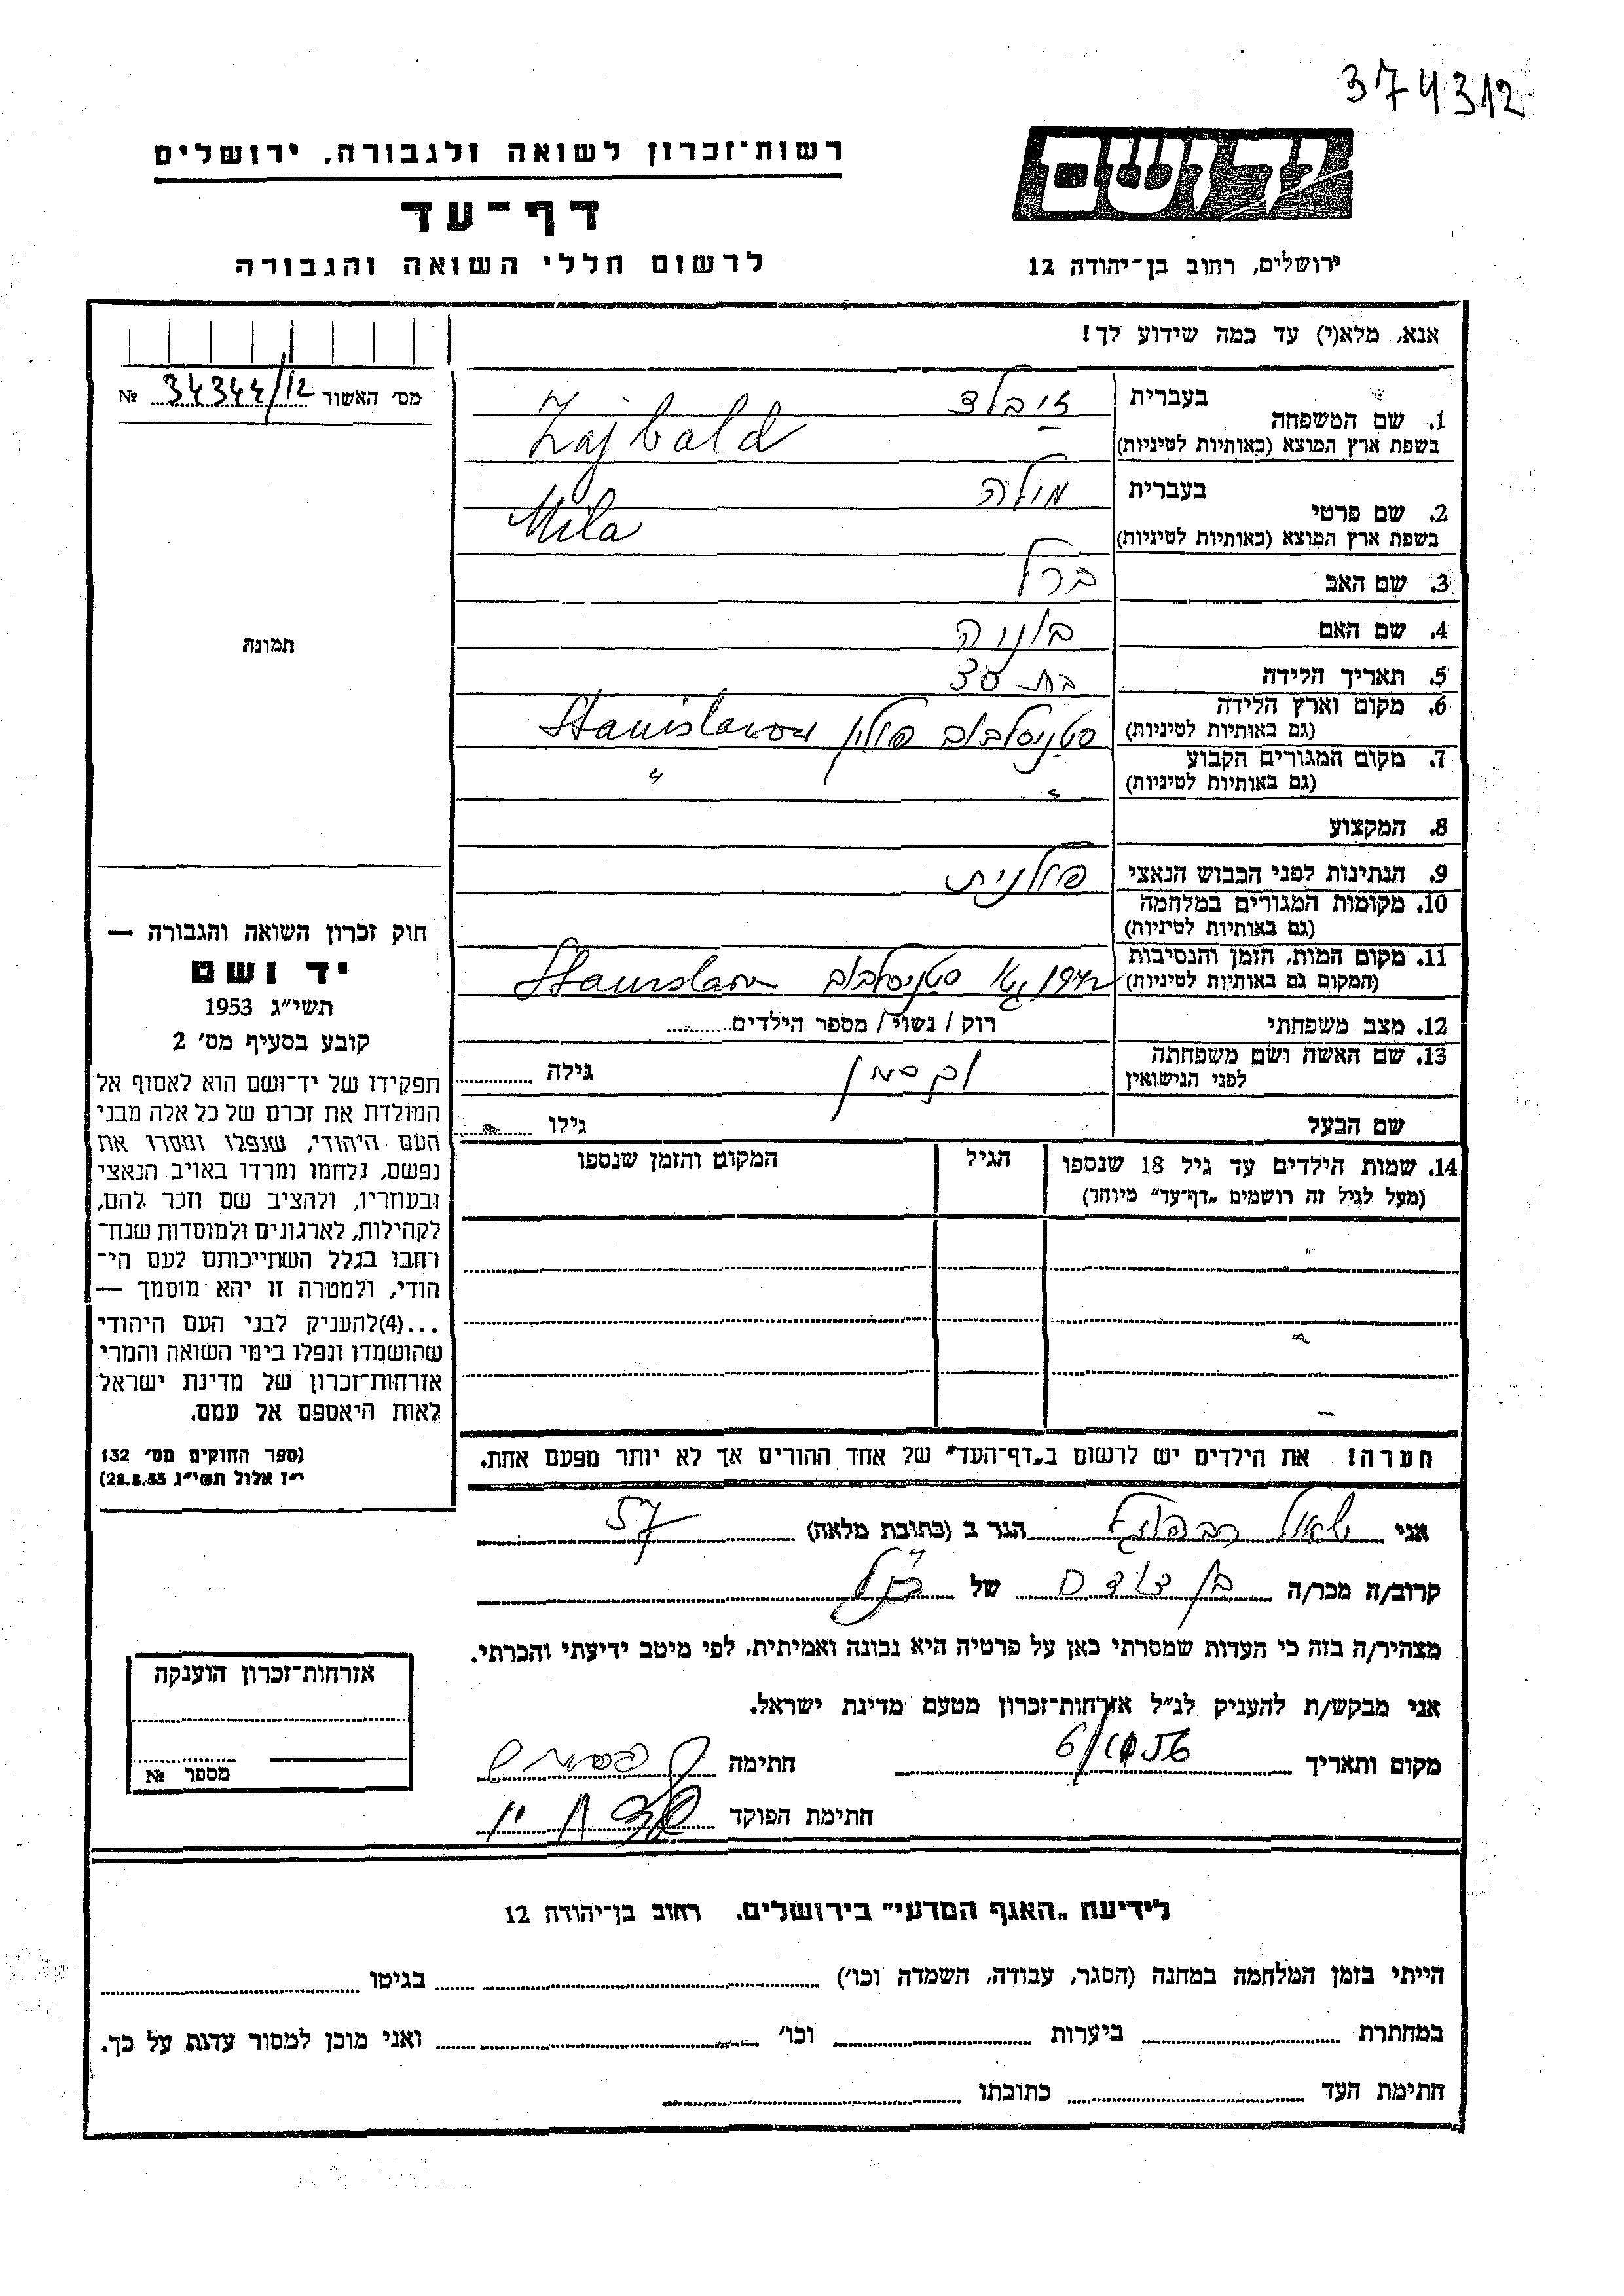 374312
רשות־זכרון לשואה ולגבורה, ירושלים
דף־עד
לרשום חללי השואה והגבורה
יד ושם
ירושלים, רחוב בן־יהודה 12
אנא, מלא(י) עד כמה שידוע לך!
מס' האשור 34344/12 №
תמונה
1. שם המשפחה
בעברית זיבלד
בשפת ארץ המוצא (באותיות לטיניות) Zajbald
2. שם פרטי
בעברית מילה
בשפת ארץ המוצא (באותיות לטיניות) Mila
3. שם האב ברל
4. שם האם
5. תאריך הלידה בת 35
6. מקום וארץ הלידה (גם באותיות לטיניות) סטניסלבוב פולין Stanislawow
7. מקום המגורים הקבוע (גם באותיות לטיניות) " "
8. המקצוע
9. הנתינות לפני הכבוש הנאצי פולנית
10. מקומות המגורים במלחמה (גם באותיות לטיניות)
11. מקום המות, הזמן והנסיבות (המקום גם באותיות לטיניות) סטניסלבוב Stanislaw
12. מצב משפחתי רוק / נשוי / מספר הילדים
13. שם האשה ושם משפחתה לפני הנישואין גילה
שם הבעל גילו
14. שמות הילדים עד גיל 18 שנספו
(מעל לגיל זה רושמים „דף־עד" מיוחד)
הגיל
המקום והזמן שנספו
חוק זכרון השואה והגבורה —
יד ושם
תשי"ג 1953
קובע בסעיף מס' 2
תפקידו של יד־ושם הוא לאסוף אל
המולדת את זכרם של כל אלה מבני
העם היהודי, שנפלו ומסרו את
נפשם, נלחמו ומרדו באויב הנאצי
ובעוזריו, ולהציב שם וזכר להם,
לקהילות, לארגונים ולמוסדות שנח־
רבו בגלל השתייכותם לעם הי־
הודי, ולמטרה זו יהא מוסמך —
...(4)להעניק לבני העם היהודי
שהושמדו ונפלו בימי השואה והמרי
אזרחות־זכרון של מדינת ישראל
לאות היאספם אל עמם.
(ספר החוקים מס' 132
י"ז אלול תשי"ג 28.8.53)
הערה! את הילדים יש לרשום ב„דף־העד" של אחד ההורים אך לא יותר מפעם אחת.
אני שאול הגר ב (כתובת מלאה)
קרוב/ה מכר/ה בן דודם של
מצהיר/ה בזה כי העדות שמסרתי כאן על פרטיה היא נכונה ואמיתית, לפי מיטב ידיעתי והכרתי.
אני מבקש/ת להעניק לנ"ל אזרחות־זכרון מטעם מדינת ישראל.
מקום ותאריך חתימה
חתימת הפוקד
אזרחות־זכרון הוענקה
מספר №
לידיעת „האגף המדעי" בירושלים. רחוב בן־יהודה 12
הייתי בזמן המלחמה במחנה (הסגר, עבודה, השמדה וכו') בגיטו
במחתרת ביערות וכו' ואני מוכן למסור עדות על כך.
חתימת העד כתובתו